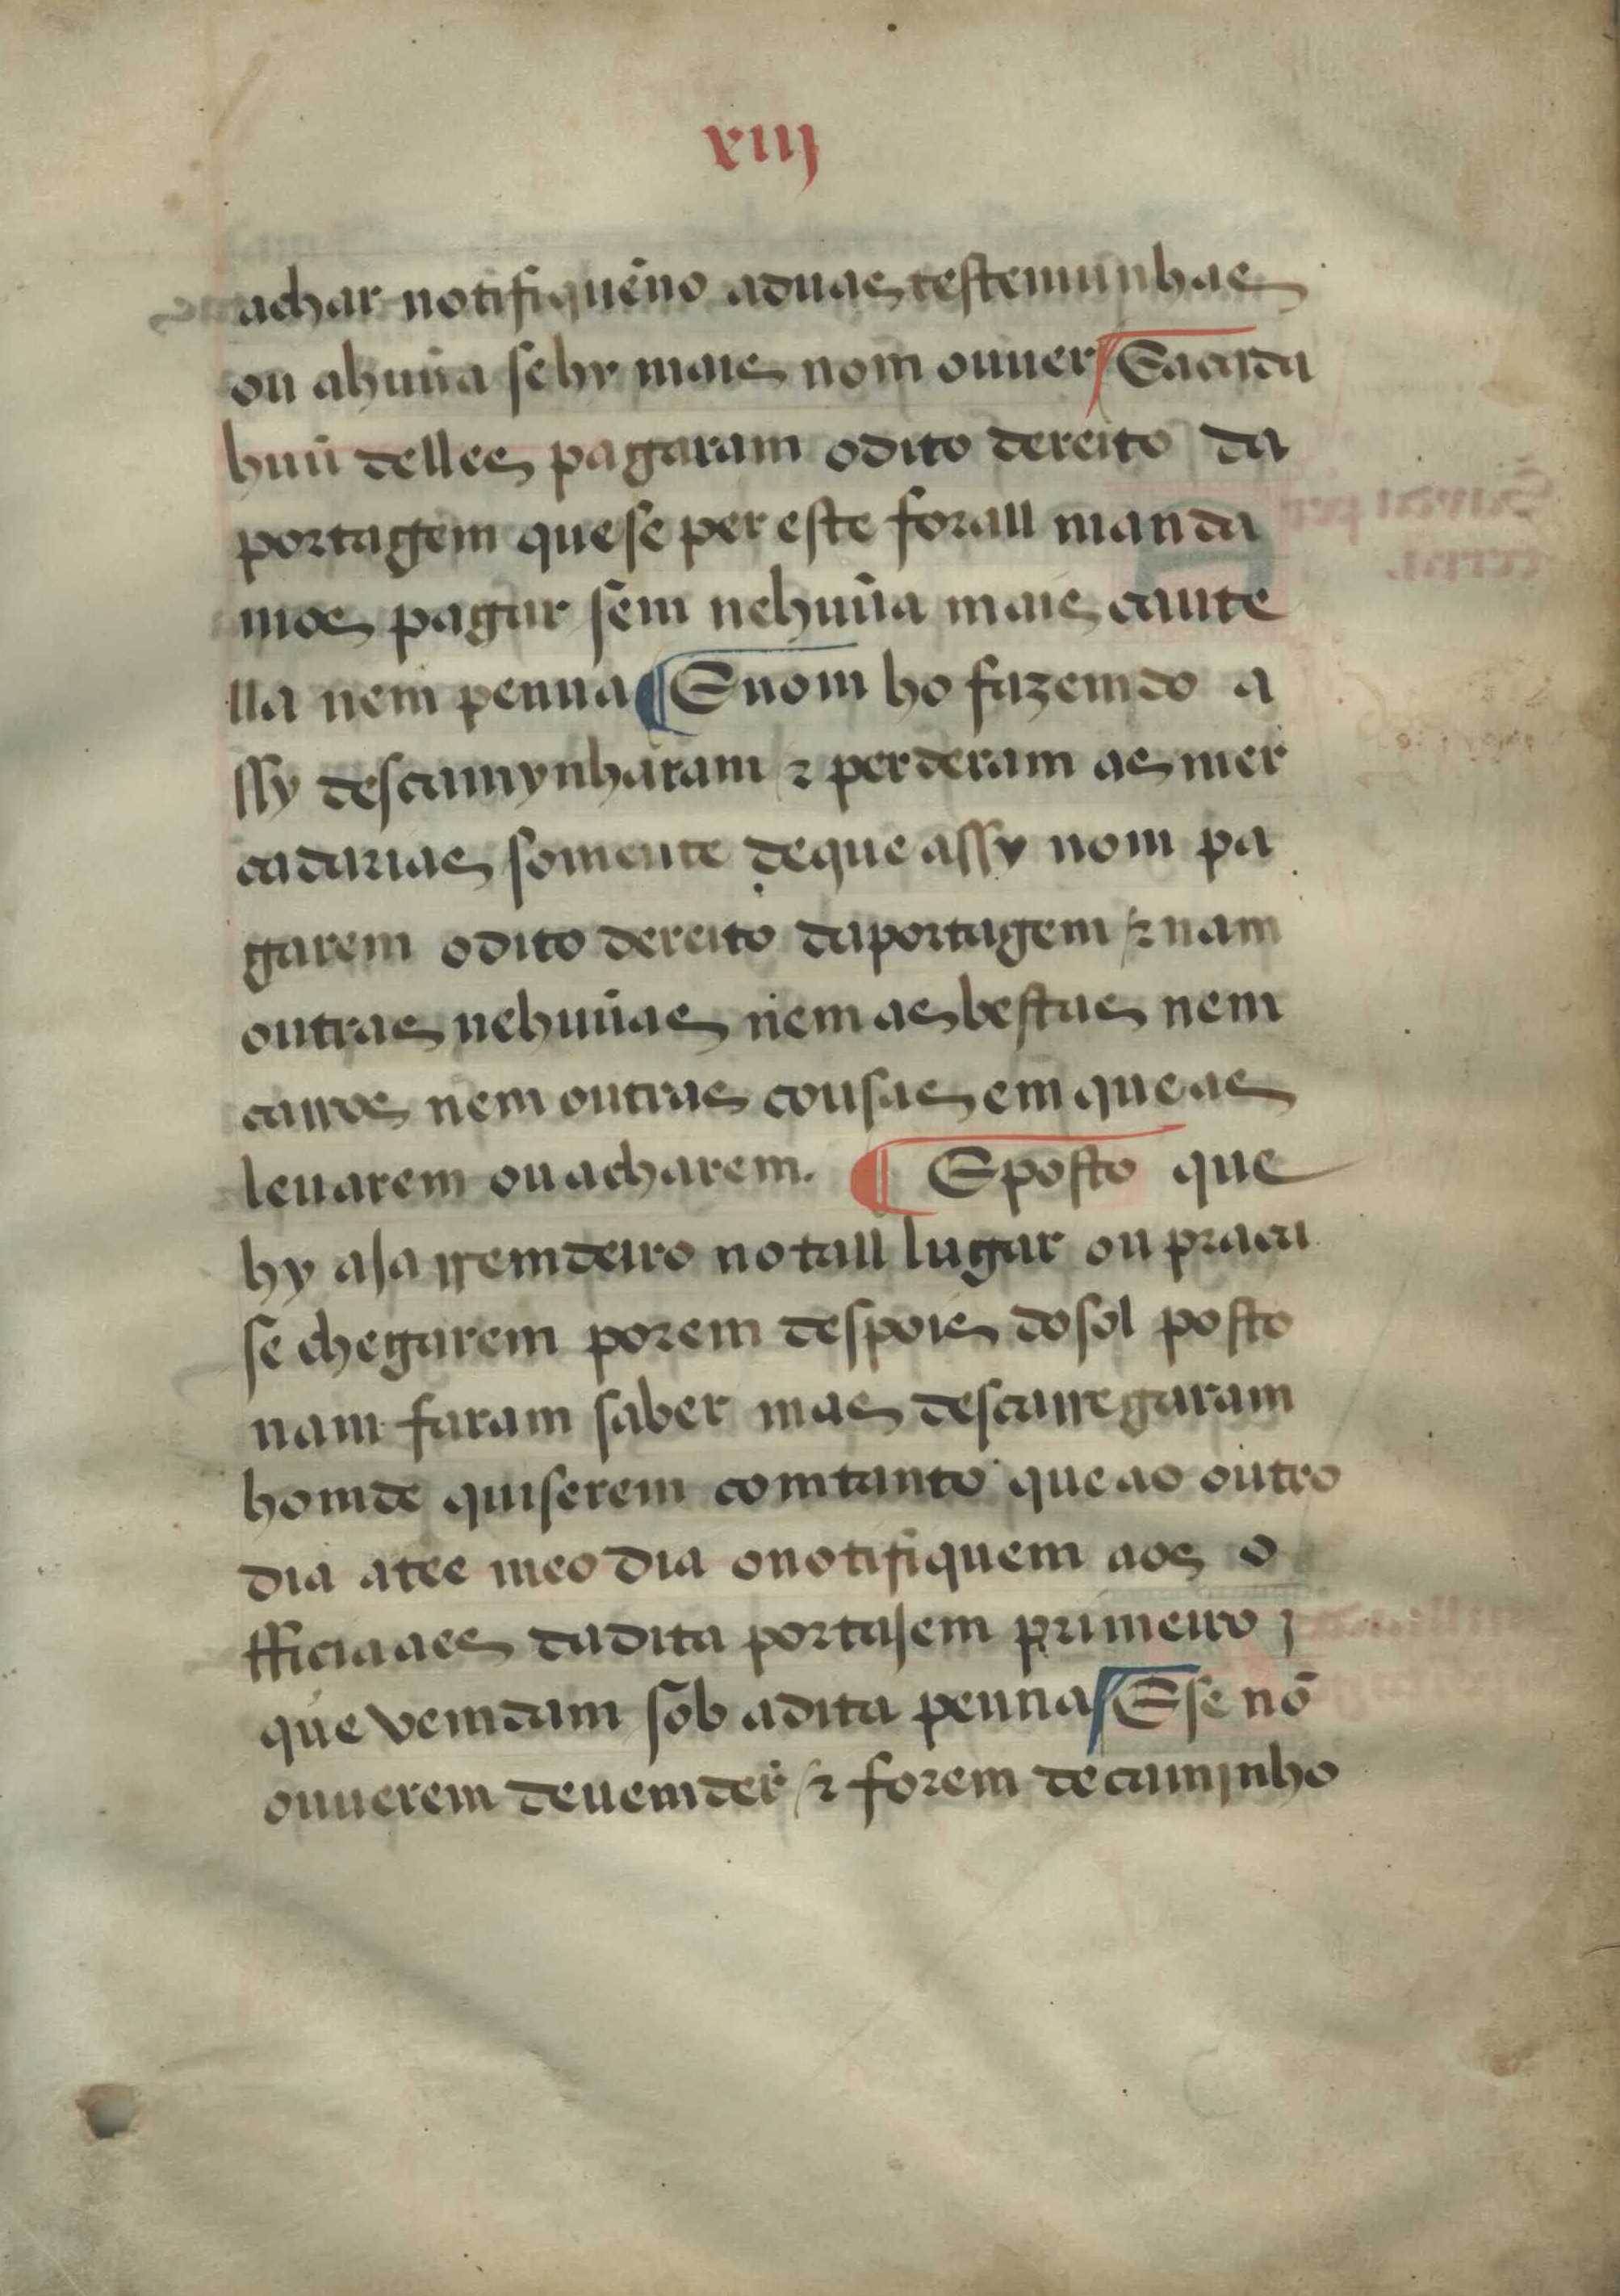 xiij
achar notifiquẽno aduas testemunhas
ou ahuũa se hy mais nom ouuer E a cada
huũ delles pagaram o dito dereito da
portagem que se per este forall manda
mos pagar sem nehuũa mais caute
lla nem penna ¶ E nom ho fazemdo a
ssy descamynharam ⁊ perderam as mer
cadarias somente de que assy nom pa
garem o dito dereito da portagem ⁊ nam
outras nehuũas nem as bestas nem
carros nem outras cousas em que as
leuarem ou acharem. ¶ E posto que
hy aja rremdeiro no tall lugar ou praça
se chegarem porem despois do sol posto
nam faram saber mas descarregaram
homde quiserem comtanto que ao outro
dia atee meo dia o notifiquem aos o
fficiaaes da dita portajem primeiro
que vemdam sob a dita penna E se nõ
ouuerem de uemder ⁊ forem de caminho